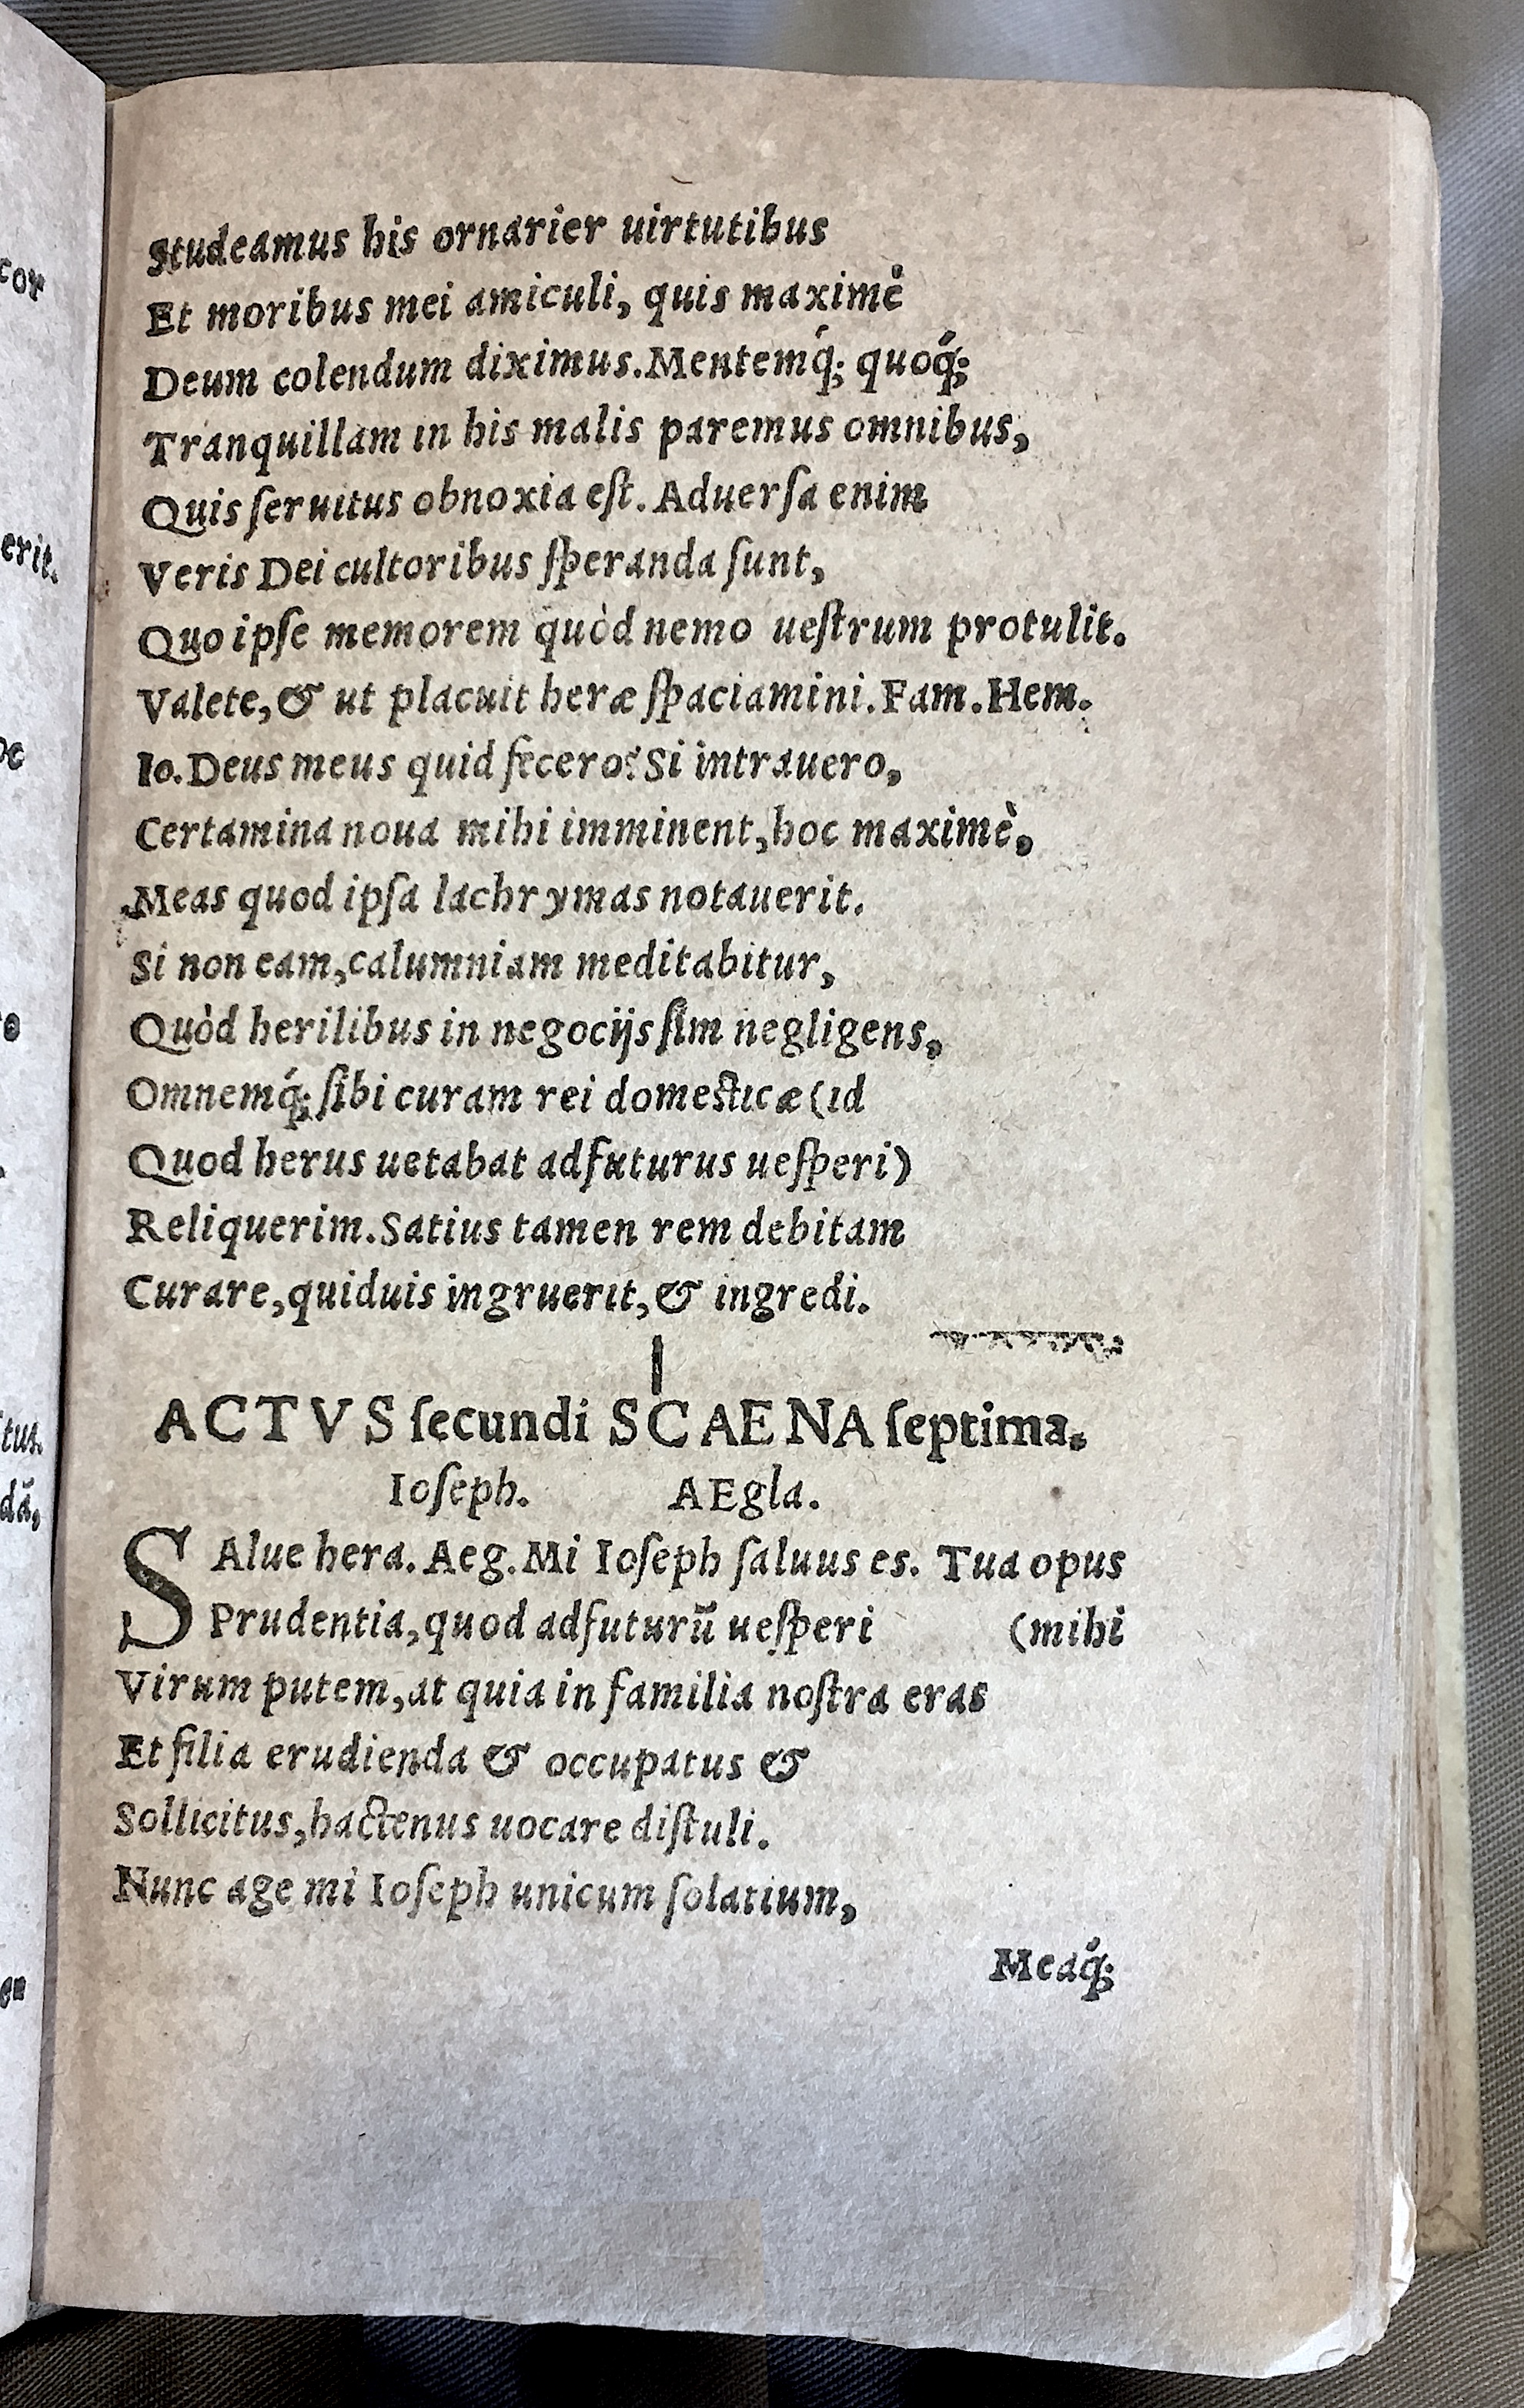 Studeamus his ornarier uirtutibus
Et moribus mei amiculi, quis maximè
Deum colendum diximus. Mentemq́; quoq́;
Tranquillam in his malis paremus omnibus,
Quis ſeruitus obnoxia eſt. Aduerſa enim
Veris Dei cultoribus ſperanda ſunt,
Quo ipſe memorem quòd nemo ueſtrum protulit.
Valete, & ut placuit heræ ſpaciamini. Fam. Hem.
Io. Deus meus quid fecero? Si intrauero,
Certamina noua mihi imminent, hoc maximè,
Meas quod ipſa lachrymas notauerit.
Si non eam, calumniam meditabitur,
Quòd herilibus in negocijs ſim negligens,
Omnemq́; ſibi curam rei domeſticæ (id
Quod herus uetabat adfuturus ueſperi)
Reliquerim. Satius tamen rem debitam
Curare, quiduis ingruerit, & ingredi.
ACTVS ſecundi SCAENA ſeptima.
Ioſeph. AEgla.
SAlue hera. Aeg. Mi Ioſeph ſaluus es. Tua opus
Prudentia, quod adfuturū ueſperi (mihi
Virum putem, at quia in familia noſtra eras
Et filia erudienda & occupatus &
Sollicitus, hactenus uocare diſtuli.
Nunc age mi Ioſeph unicum ſolatium,
Meaq́;
cor
erit.
tus.
dã,